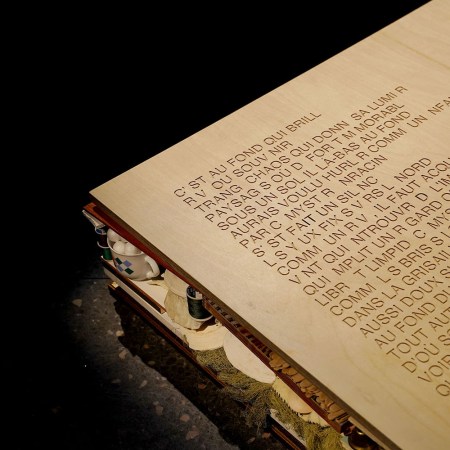 C' ST AU FOND QUI BRILL
R V OU SOUV NIR
TRANG CHAOS QUI DONN SA LUMI R
PAYSAG S OÙ D FORT M MORABL
SOUS UN SOL IL LÀ-BAS AU FOND
AURAIS VOULU HURL R COMM UN NFA
PAR C MYST R NRACIN
S ST FAIT UN SIL NC
L S Y UX FIX S V RS L NORD
COMM UN R V IL FAUT ACQU
V NT QUI NTROUVR D L'IN
QUI MPLIT UN R GARD
LIBR T LIMPID
COMM L S BRIS
DANS LA GRISAI
AUSSI DOUX S
AU FOND D
TOUT AUT
D'OÙ S
VOI